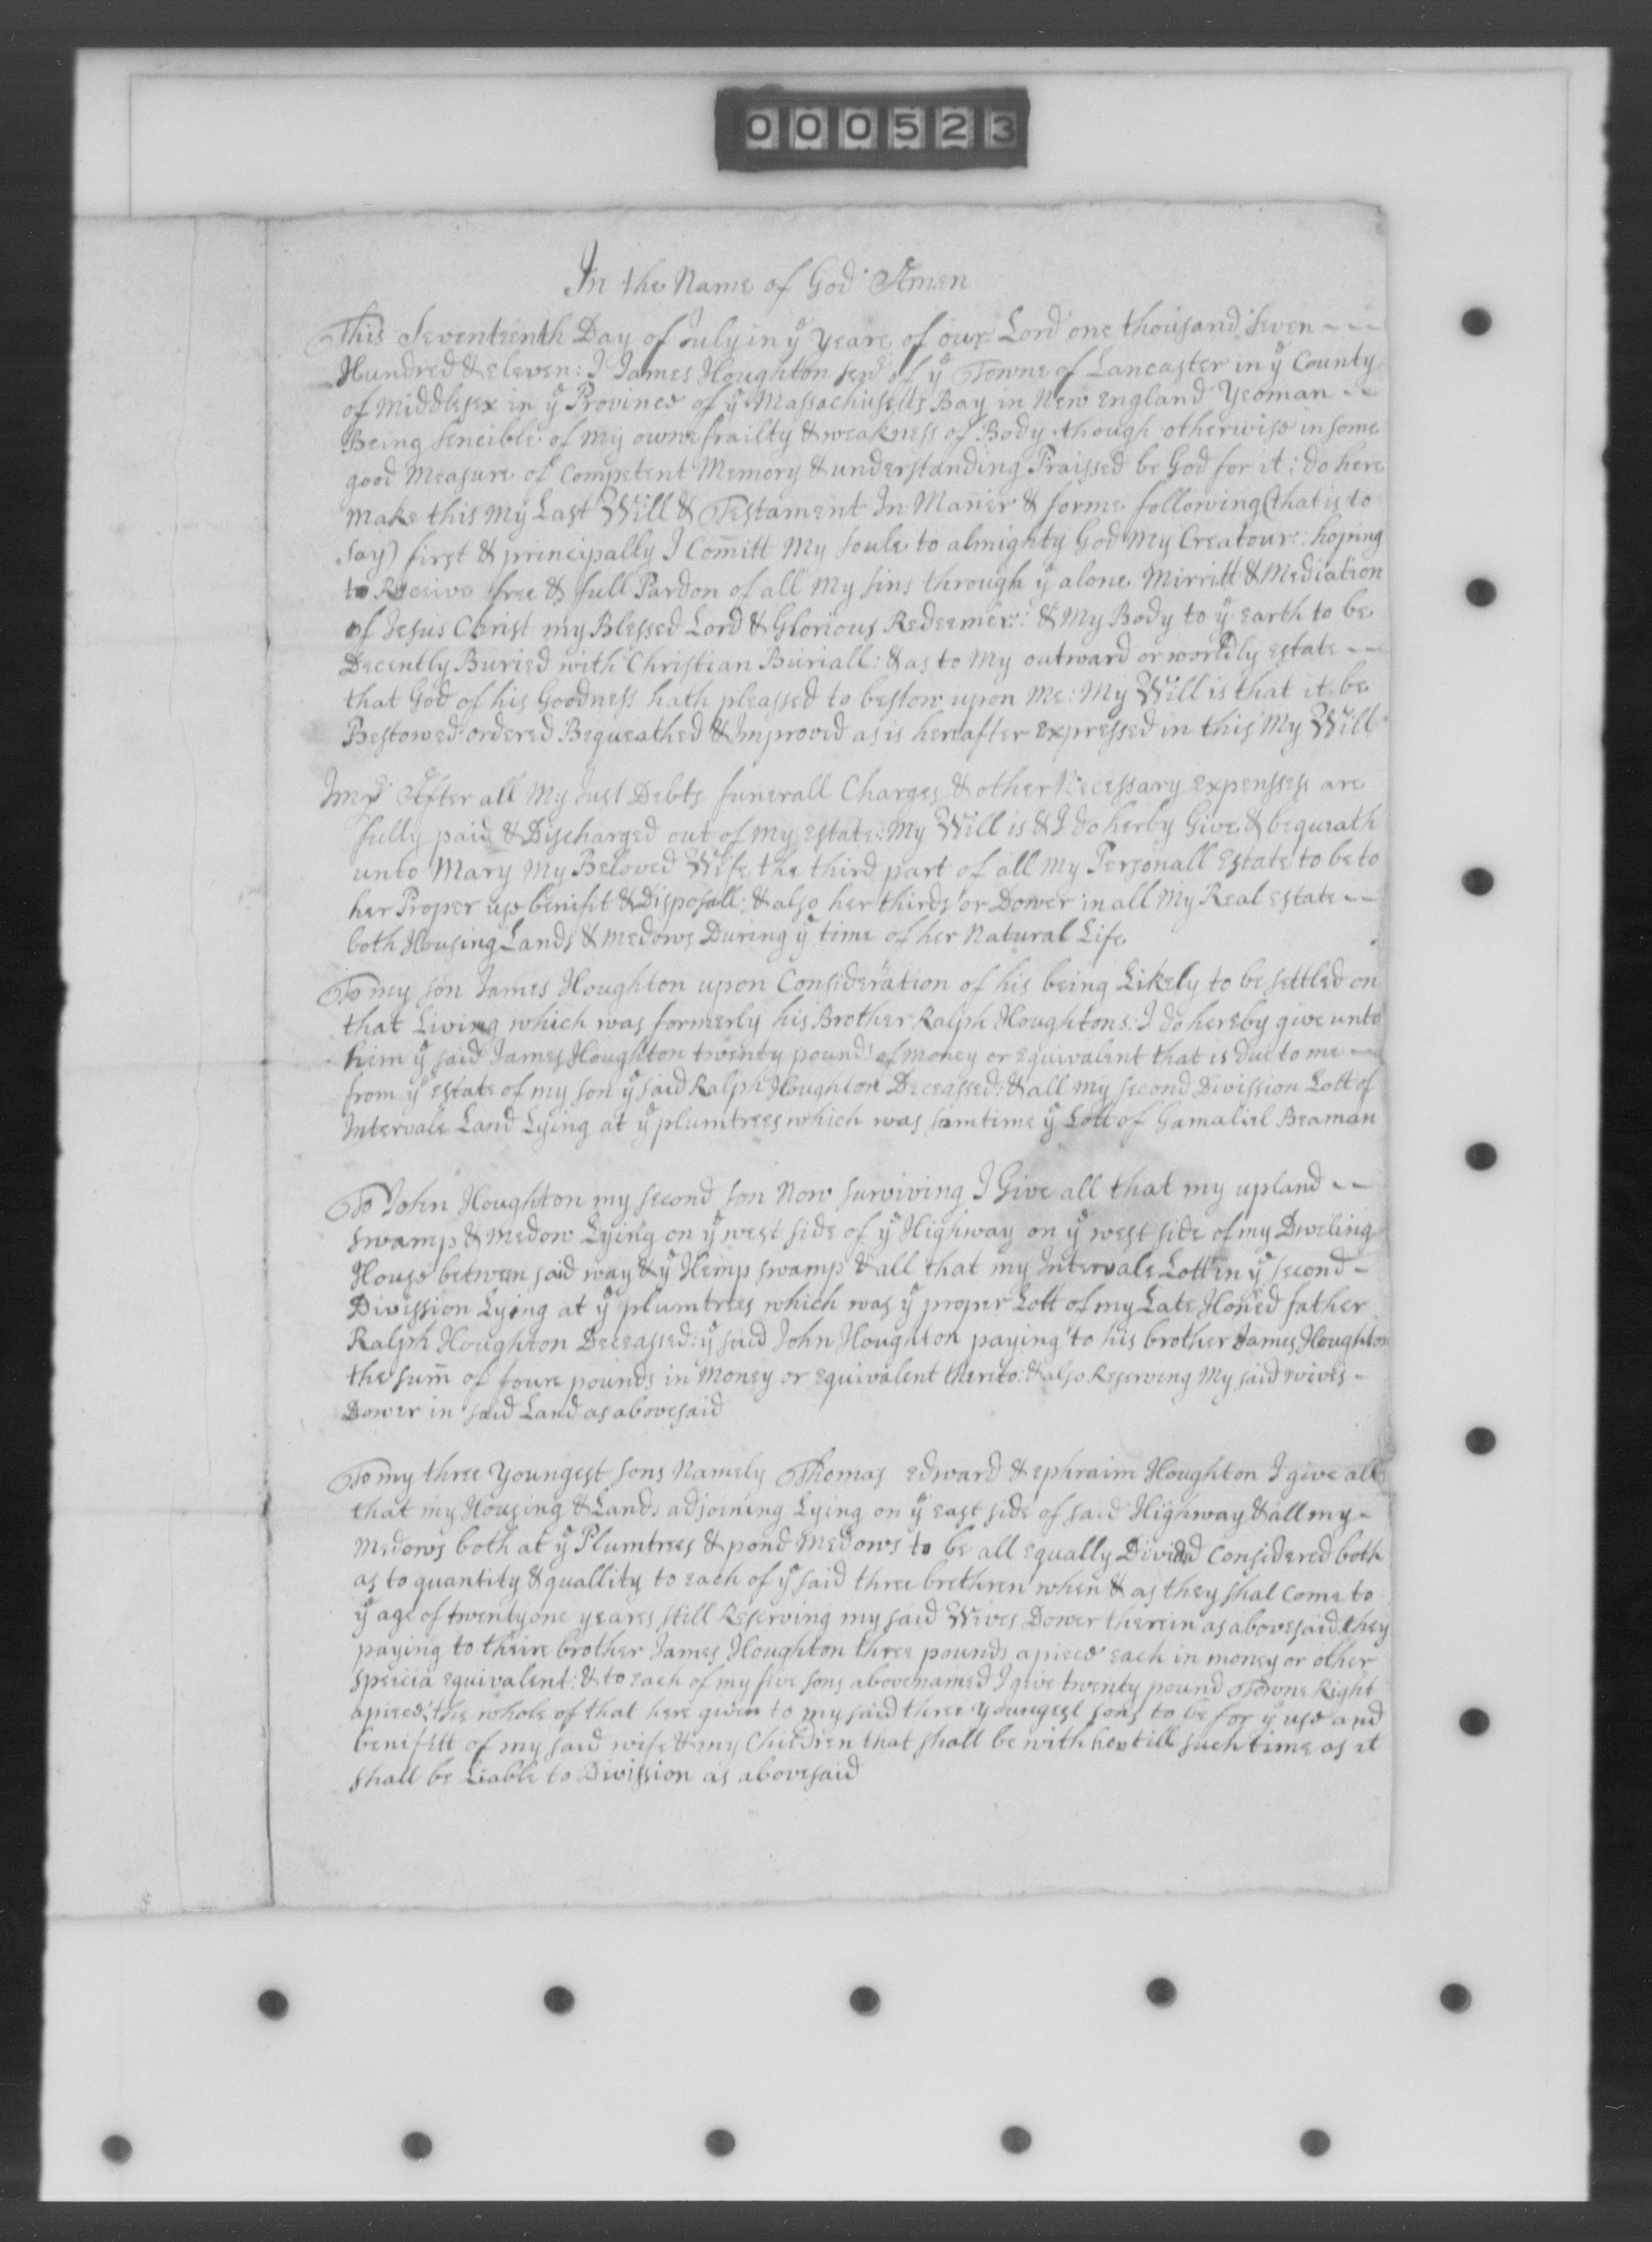 000523
In the Name of God Amen
This Seventeenth Day of July in yᵉ Yeare of our Lord one thousand Seven - - -
Hundred & eleven: I James Houghton senʳ of yᵉ Towne of Lancaster in yᵉ County
of Middlesex in yᵉ Province of yᵉ Massachusetts Bay in New England Yeoman - -
Being sencible of my owne frailty & weakness of Body though otherwise in some
good Measure of Competent Memory & understanding Praissed be God for it; do here
make this My Last Will & Testament In Man̄er & forme following (that is to
say) first & principally I Com̄itt My soule to almighty God My Creatour: hoping
to Receive free & full Pardon of all My sins through yᵉ alone Mirritt & Mediation
of Jesus Christ my Blessed Lord & Glorious Redeemer: & My Body to yᵉ earth to be
Decently Buried with Christian Buriall: & as to My outward or worldly estate - -
that God of his Goodness hath pleassed to bestow upon Me: My Will is that it be
Bestowed ordered Bequeathed & Improved as is herafter expressed in this My Will
Impʳ After all My Just Debts funerall Charges & other Necessary expensses are
fully paid & Discharged out of my estate: My Will is & I do herby Give & bequeath
unto Mary My Beloved Wife the third part of all my Personall Estate to be to
her Proper use benifit & Disposall: & also her thirds or Dower in all My Real estate - -
both Housing Lands & medows During yᵉ time of her Natural Life
To my son James Houghton upon Consideration of his being Likely to be settled on
that Living which was formerly his Brother Ralph Houghtons: I do hereby give unto
him yᵉ said James Houghton twenty pounds of money or equivalent that is due to me -
from yᵉ estate of my son yᵉ said Ralph Houghton Deceassed: & all my second Divission Lott of
Intervale Land Lying at yᵉ plumtrees which was somtime yᵉ Lott of Gamaliel Beaman
To John Houghton my second son Now surviving I Give all that my upland - -
swamp & medow Lying on yᵉ west side of yᵉ Highway on yᵉ west side of my Dweling
House between said way & yᵉ Hemp swamp & all that my Intervale Lott in yᵉ second -
Divission Lying at yᵉ plumtrees which was yᵉ proper Lott of my Late Honᵉd father
Ralph Houghton Deceassed: yᵉ said John Houghton paying to his brother James Houghton
the sum̄ of foure pounds in Money or equivalent thereto: & also Reserving My said wives -
Dower in said Land as abovesaid
To my three Youngest sons Namely Thomas Edward & Ephraim Houghton I give all
that my Housing & Lands adjoining Lying on yᵉ east side of said Highway & all my -
Medows both at yᵉ Plumtrees & pond Medows to be all equally Divided Considered both
as to quantity & quallity to each of yᵉ said three brethren when & as they shal Come to
yᵉ age of twenty one yeares still Reserving my said Wives Dower therein as abovesaid they
paying to theire brother James Houghton three pounds apiece each in money or other
speicia equivalent: & to each of my five sons abovenamed I give twenty pound Towne Right
apiece; the whole of that here given to my said three youngest sons to be for yᵉ use and
benifitt of my said wife & my Children that shall be with her till such time as it
shall be Liable to Divission as abovesaid